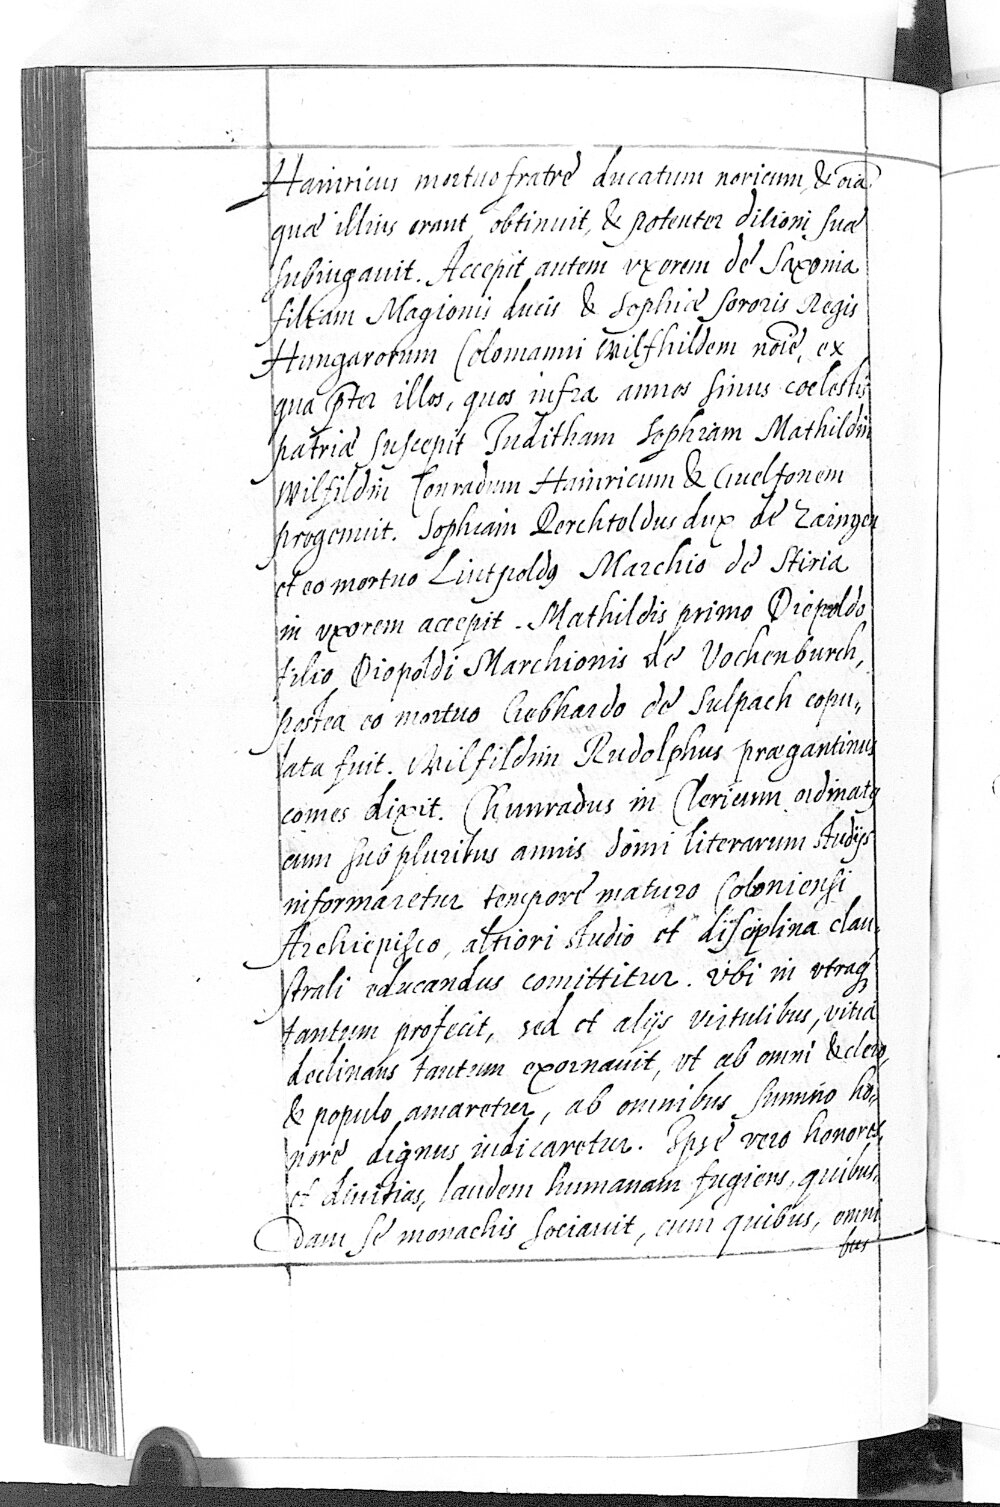 Hainricus mortuo fratre ducatum noricum, & oīa
quæ illius erant, obtinuit, & potenter ditioni suæ
subiugauit. Accepit autem vxorem de Saxonia
filiam Magionis ducis & Sophiæ sororis Regis
Hungarorum Colomanni Wilfhildem noīe, ex
qua p̄ter illos, quos infra annos sinus coelestis
patriæ suscepit Juditham Sophiam Mathildim
Wilfildim Conradum Hainricum & Guelfonem
progenuit. Sophiam Berchtoldus dux de Zaingen
et eo mortuo Liutpoldꝰ Marchio de Stiria
in vxorem accepit. Mathildis primo Diepoldo
filio Diopoldi Marchionis de Vochenburch,
postea eo mortuo Gebhardo de Sulpach copu„
lata fuit. Wilfildim Rudolphus prægantinus
comes dixit. Chunradus in Clericum ordinatꝰ
cum sub pluribus annis domi literarum studijs
informaretur tempore maturo Coloniensi
Archiepisco, altiori studio et disciplina clau„
strali educandus comittitur. Vbi in vtraqꝫ
tantum profecit, sed et alijs virtutibus, vitia
declinans tantum exornauit, vt ab omni & clero,
& populo amaretur, ab omnibus sum̄o ho„
nore dignus iudicaretur. Ipse vero honores,
et diuitias, laudem humanam fugiens, quibus„
dam se monachis sociauit, cum quibus, omni
bus